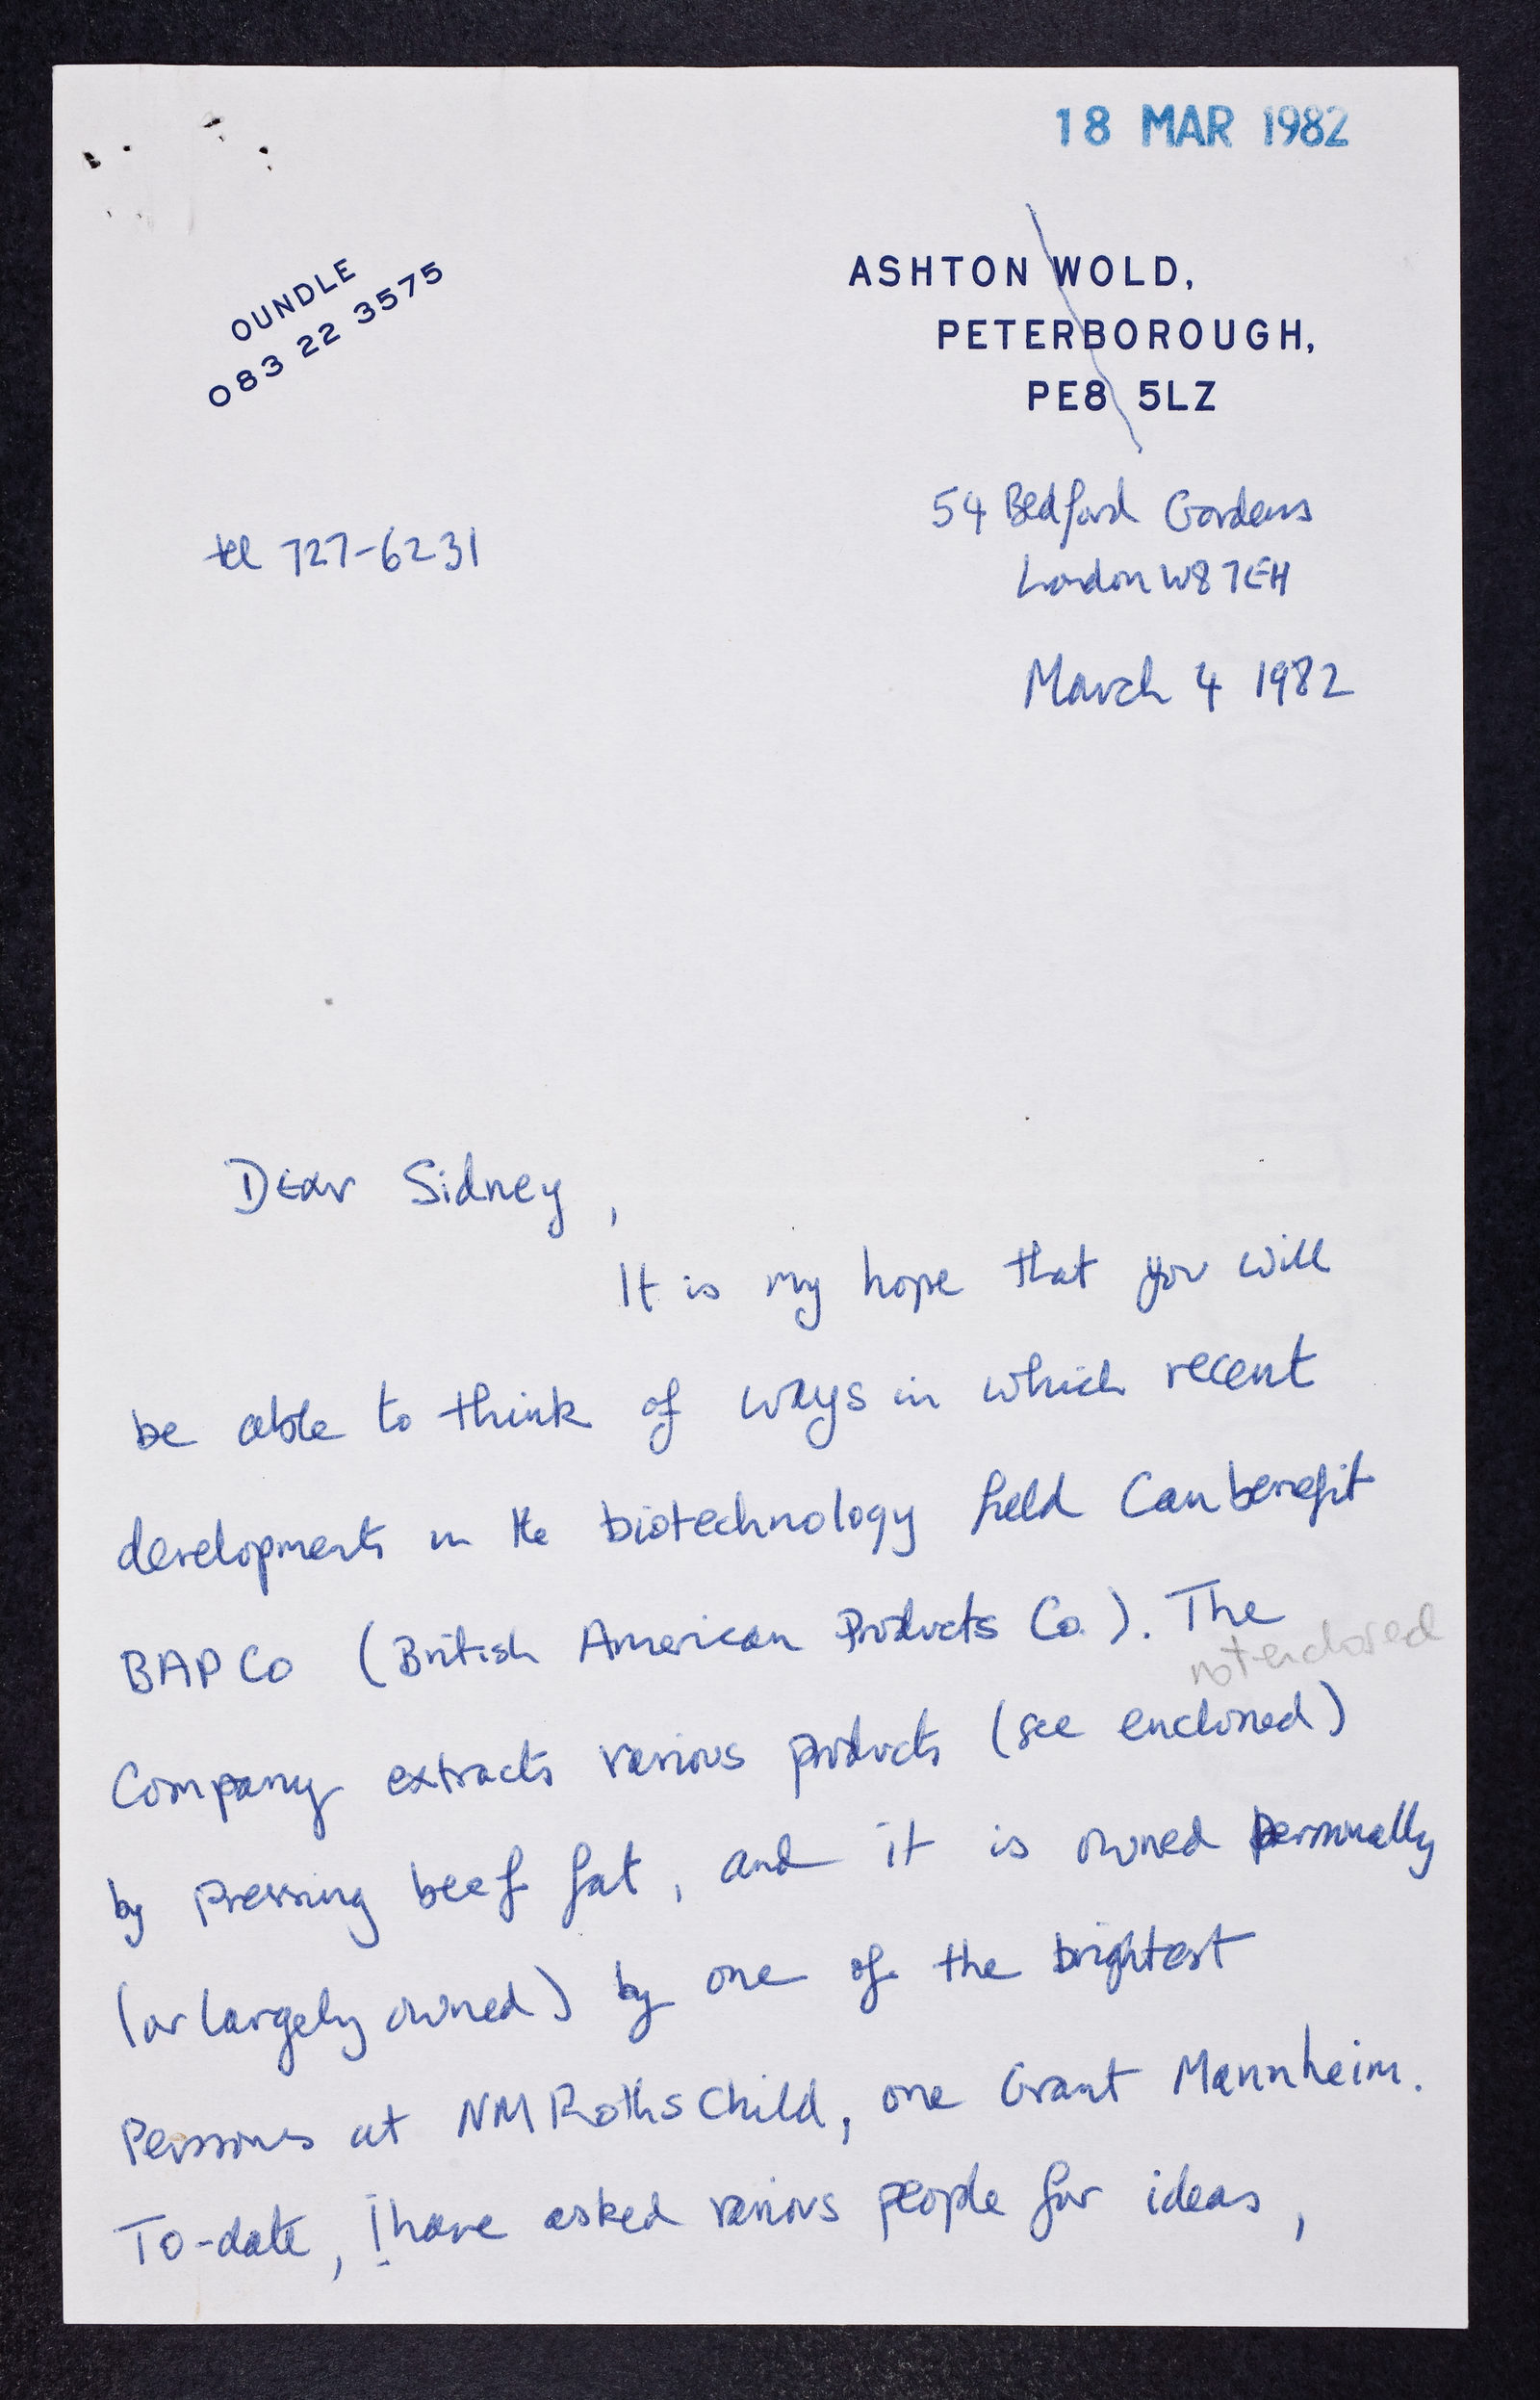 18 MAR 1982
OUNDLE
083 22 3575
ASHTON WOLD,
PETERBOROUGH,
PE8 5LZ
tel 727-6231
54 Bedford Gardens
London W8 7EH
March 4 1982
Dear Sidney,
It is my hope that you will
be able to think of ways in which recent
developments in the biotechnology field can benefit
BAPCo (British American Products Co.). The
not enclosed
Company extracts various products (see enclosed)
by pressing beef fat, and it is owned personally
(or largely owned) by one of the brightest
Persons at NM Rothschild, one Grant Mannheim.
To-date, I have asked various people for ideas,